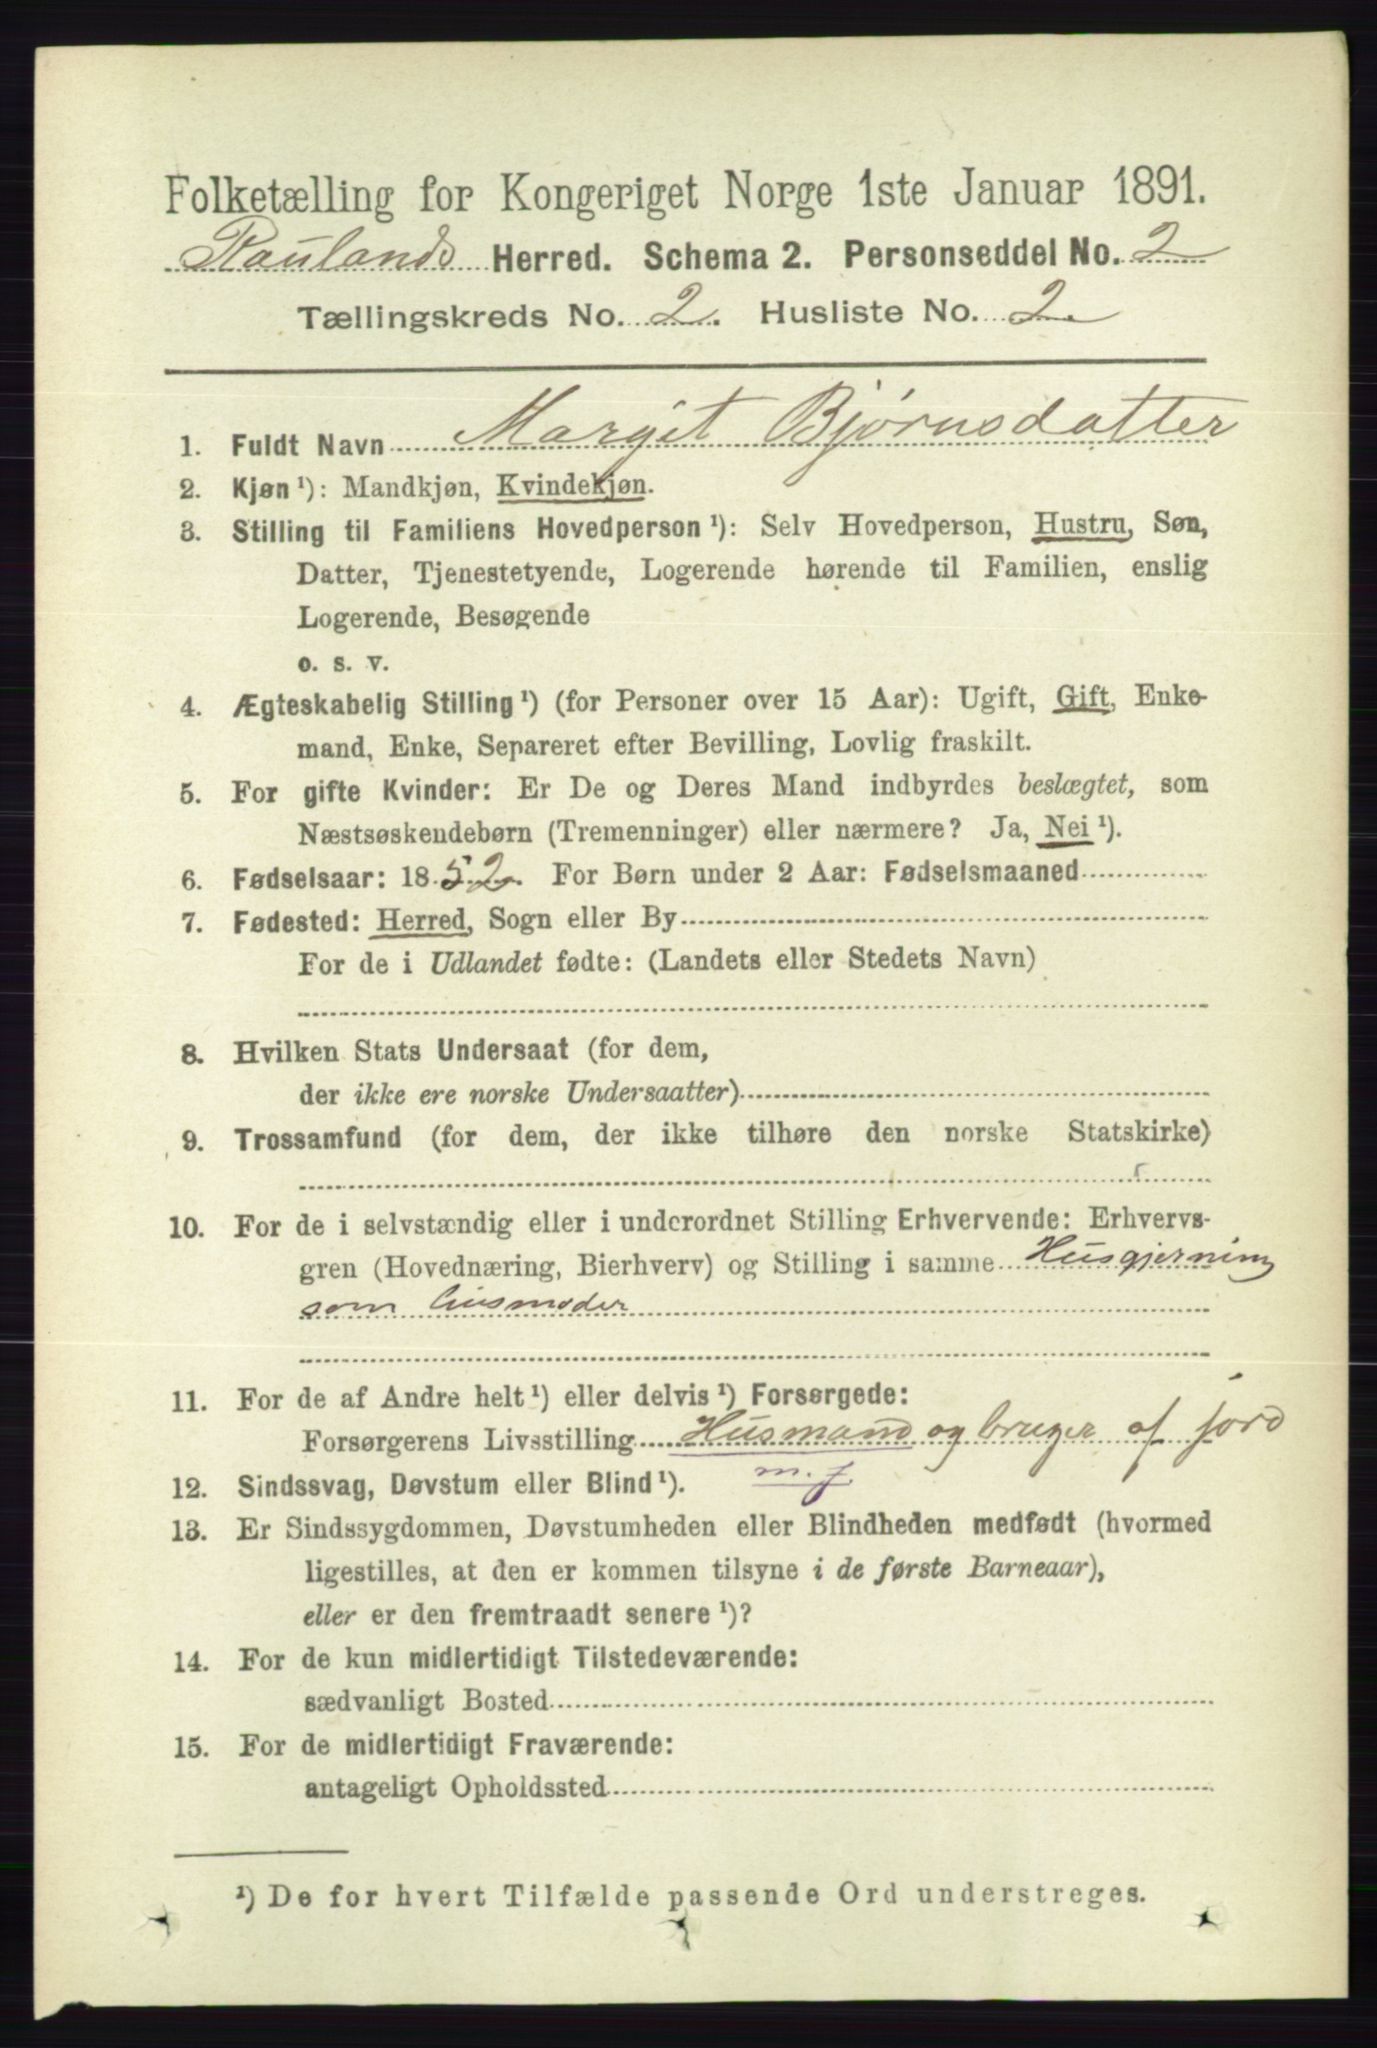 Folketælling for Kongeriget Norge 1ste Januar 1891.
Raulands Herred. Schema 2. Personseddel No. 2
Tællingskreds No. 2. Husliste No. 2.
1. Fuldt Navn Margit Bjørnsdatter
2. Kjøn ¹): Mandkjøn, Kvindekjøn.
3. Stilling til Familiens Hovedperson ¹): Selv Hovedperson, Hustru, Søn,
Datter, Tjenestetyende, Logerende hørende til Familien, enslig
Logerende, Besøgende
o. s. v.
4. Ægteskabelig Stilling ¹) (for Personer over 15 Aar): Ugift, Gift, Enke-
mand, Enke, Separeret efter Bevilling, Lovlig fraskilt.
5. For gifte Kvinder: Er De og Deres Mand indbyrdes beslægtet, som
Næstsøskendebørn (Tremenninger) eller nærmere? Ja, Nei ¹).
6. Fødselsaar: 1852. For Børn under 2 Aar: Fødselsmaaned
7. Fødested: Herred, Sogn eller By
For de i Udlandet fødte: (Landets eller Stedets Navn)
8. Hvilken Stats Undersaat (for dem,
der ikke ere norske Undersaatter)
9. Trossamfund (for dem, der ikke tilhøre den norske Statskirke)
10. For de i selvstændig eller i underordnet Stilling Erhvervende: Erhvervs-
gren (Hovednæring, Bierhverv) og Stilling i samme Husgjerning
som husmoder
11. For de af Andre helt ¹) eller delvis ¹) Forsørgede:
Forsørgerens Livsstilling Husmand og bruger af jord
m. j.
12. Sindssvag, Døvstum eller Blind ¹).
13. Er Sindssygdommen, Døvstumheden eller Blindheden medfødt (hvormed
ligestilles, at den er kommen tilsyne i de første Barneaar),
eller er den fremtraadt senere ¹)?
14. For de kun midlertidigt Tilstedeværende:
sædvanligt Bosted
15. For de midlertidigt Fraværende:
antageligt Opholdssted
¹) De for hvert Tilfælde passende Ord understreges.